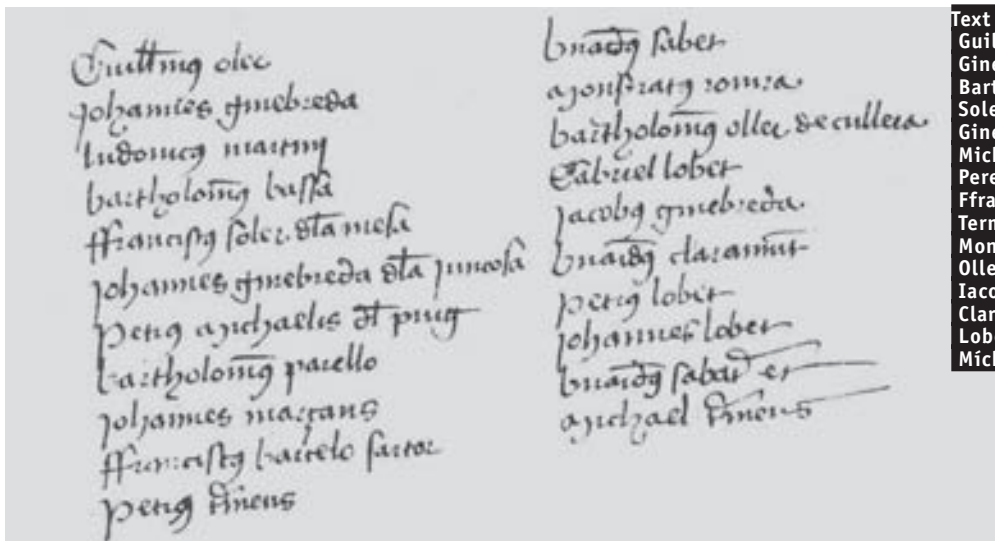 Guillmus oler
Johannes ginebreda
ludovicus martini
bartholomeus bassa
ffranciscus soler dla mesa
Johannes ginebreda dla juncosa
Petrus Michaelis dl puig
bartholomeus parello
Johannes marçans
ffranciscus barcelo sartor
Petrus
bnardus sabet
Monserratus
bartholomeus oller de cullera
Gabriel lobet
Jacobus ginebreda
bnardus claramut
petrus lobet
Johannes lobet
bnardus sabat et
Michael
Text
Guil
Gine
Bart
Sole
Gine
Mich
Pere
Ffra
Tern
Mon
Olle
Iaco
Clar
Lob
Mich